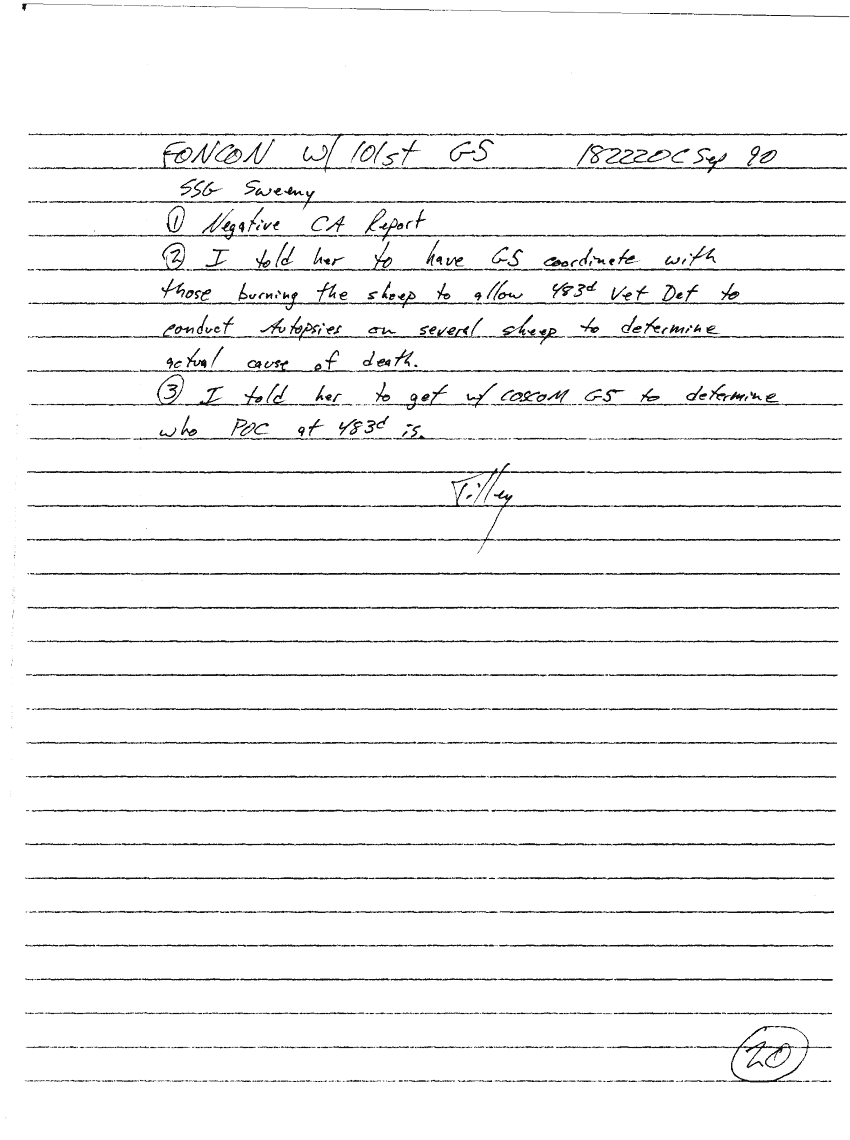 FONCON w/ 101st G5 182220C Sep 90
SSG Sweeny
① Negative CA Report
② I told her to have G5 coordinate with
those burning the sheep to allow 483d Vet Det to
conduct Autopsies on several sheep to determine
actual cause of death.
③ I told her to get w/ COSCOM G5 to determine
who POC at 483d is.
Tilley
20